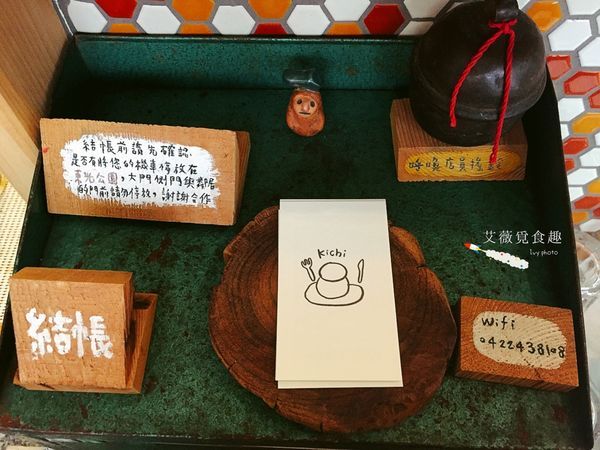 結帳前請先確認
是否有將您的機車停放在
東光公園，大門側門與鄰居
門前請勿停放，謝謝合作
呼喚店員
Kichi
艾薇覓食趣
Ivy photo
結帳
wifi
0422438108